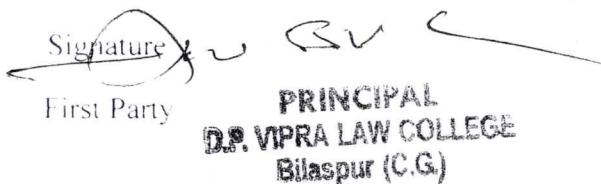 Signature
First Party
PRINCIPAL
D.P. VIPRA LAW COLLEGE
Bilaspur (C.G.)